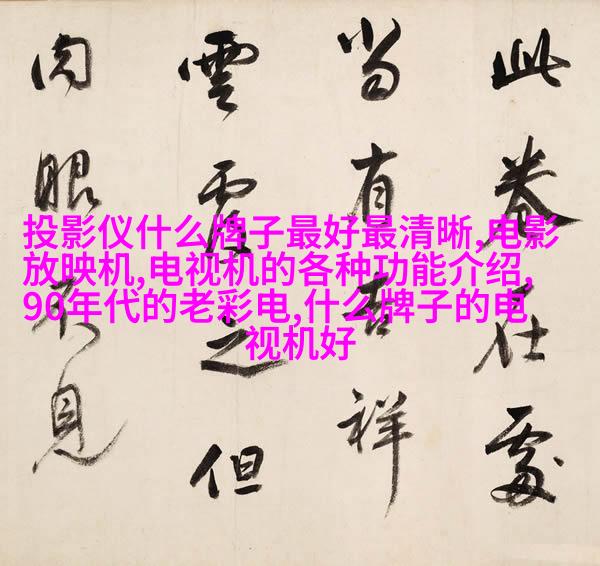 此卷在處
當有吉祥
雲覆之但
肉眼不見
投影仪什么牌子最好最清晰,电影
放映机,电视机的各种功能介绍,
90年代的老彩电,什么牌子的电
视机好